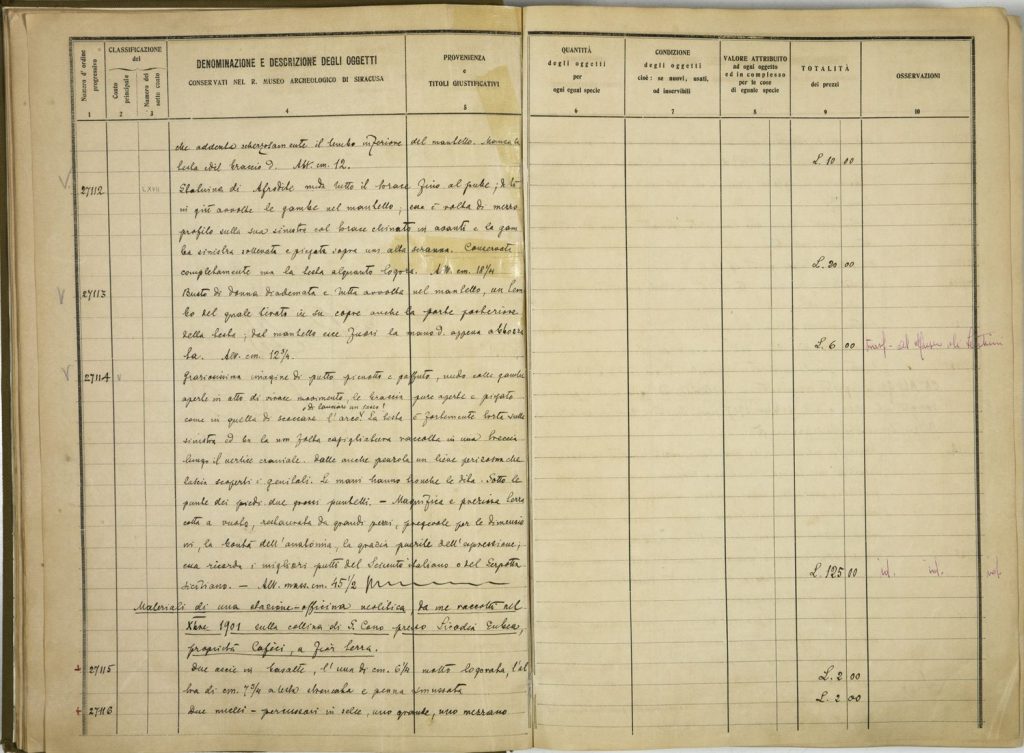 Numero d'ordine progressivo
CLASSIFICAZIONE del
Conto principale
Numero del sotto conto
DENOMINAZIONE E DESCRIZIONE DEGLI OGGETTI
CONSERVATI NEL R. MUSEO ARCHEOLOGICO DI SIRACUSA
PROVENIENZA
E
TITOLI GIUSTIFICATIVI
QUANTITÀ
degli oggetti
per
ogni egual specie
CONDIZIONE
degli oggetti
cioè: se nuovi, usati,
od inservibili
VALORE ATTRIBUITO
ad ogni oggetto
ed in complesso
per le cose
di eguale specie
TOTALITÀ
dei prezzi
OSSERVAZIONI
1 2 3 4 5 6 7 8 9 10
che addenta scherzosamente il lembo inferiore del mantello. Manca la
testa ed il braccio d. Alt. cm. 12. L. 10 00
27112 LXVII Statuina di Afrodite nuda tutto il torace fino al pube; di là
in giù avvolte le gambe nel mantello; essa è volta di mezzo
profilo sulla sua sinistra col torace chinato in avanti e la gam
ba sinistra sollevata e piegata sopra una alta scranna. Conservata
completamente ma la testa alquanto logora. Alt. cm. 18 1/4 L. 20 00
27113 Busto di donna diademata e tutta avvolta nel mantello, un lem
bo del quale tirato in su copre anche la parte posteriore
della testa; dal mantello esce fuori la mano d. appena abbozza
ta. Alt. cm. 12 3/4. L. 6 00
27114 V Graziosissima imagine di putto pienotto e paffuto, nudo colle gambe
aperte in atto di vivace movimento, le braccia pure aperte e piegate
o di lanciare un sasso?
come in quella di scoccare l'arco? La testa è fortemente torta sulla
sinistra ed ha la non folta capigliatura raccolta in una treccia
lungo il vertice craniale. Dalle anche penzola un lieve perizoma che
lascia scoperti i genitali. Le mani hanno tronche le dita. Sotto le
punte dei piedi due grossi puntelli. — Magnifica e preziosa terra
cotta a vuoto, restaurata da grandi pezzi, pregevole per le dimensio
ni, la bontà dell'anatomia, la grazia puerile dell'espressione;
essa ricorda i migliori putti del Seicento italiano o del Serpotta
siciliano. — Alt. mass. cm. 45 1/2 L. 125 00 id. id. id.
Materiali di una stazione-officina neolitica, da me raccolti nel
1901 sulla collina di S. Cono presso Licodia Eubea,
proprietà Cafici, a fior terra.
27115 Due accie in basalte, l'una di cm. 6 1/4 molto logorata, l'al
tra di cm. 7 3/4 a testa troncata e penna smussata L. 2 00
27116 Due nuclei - percussori in selce, uno grande, uno mezzano L. 2 00